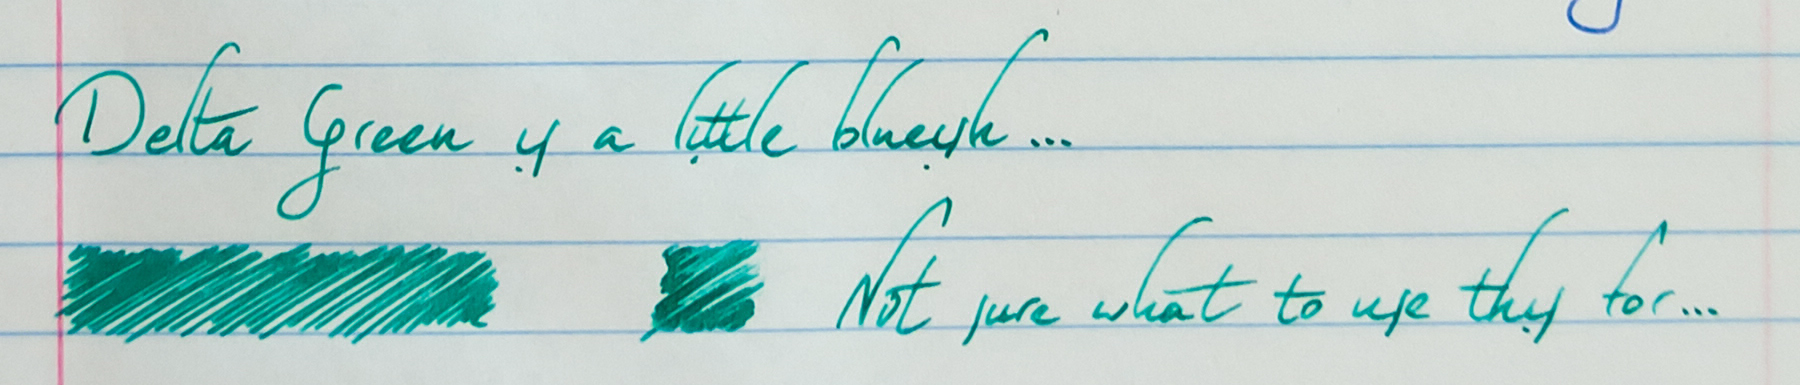 Delta Green is a little blueish...
Not sure what to use this for...